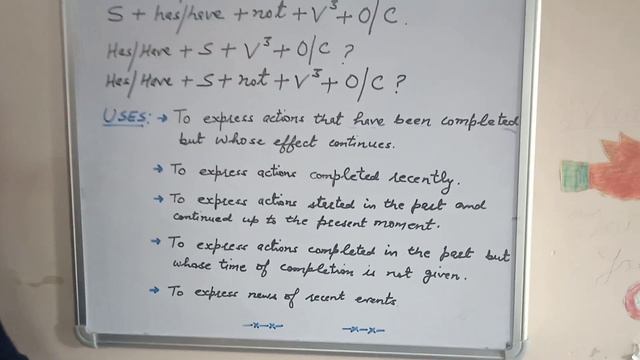 S + has/have + not + V³ + O/C.
Has/Have + S + V³ + O/C ?
Has/Have + S + not + V³ + O/C ?
USES: → To express actions that have been completed
but whose effect continues.
→ To express actions completed recently.
→ To express actions started in the past and
continued up to the present moment.
→ To express actions completed in the past but
whose time of completion is not given.
→ To express news of recent events